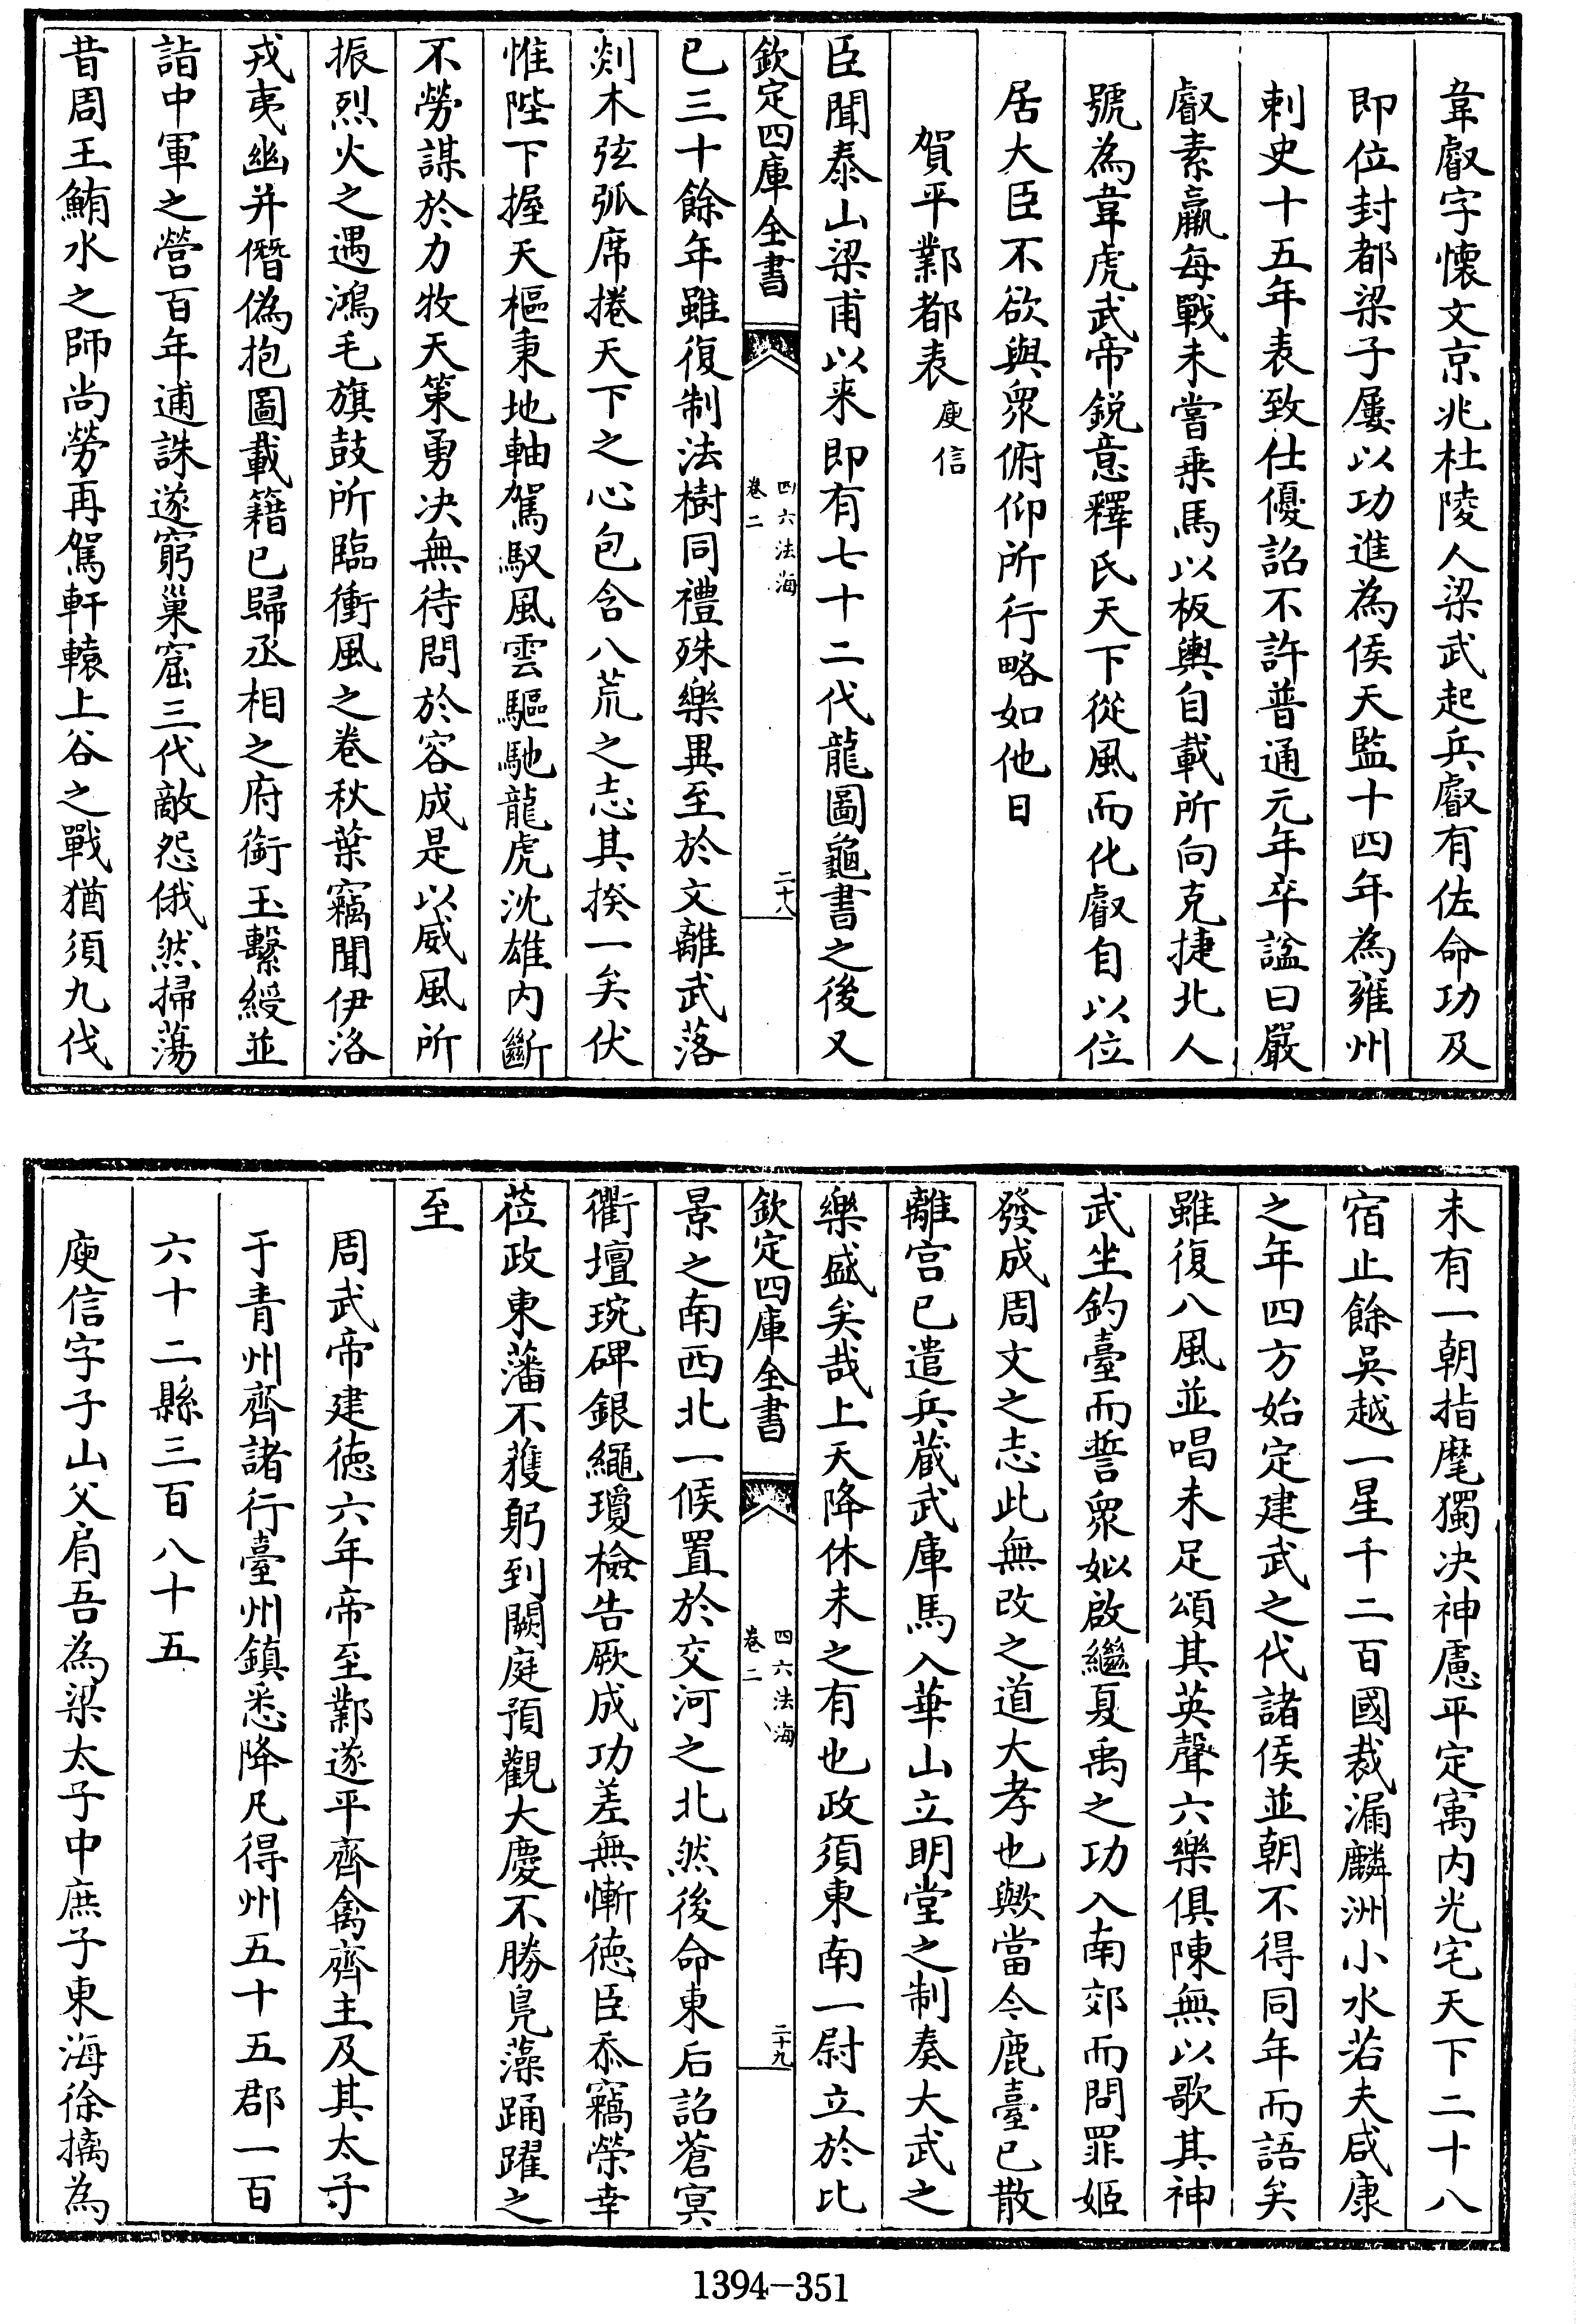 韋叡字懷文京兆杜陵人梁武起兵叡有佐命功及
即位封都梁子屢以功進為侯天監十四年為雍州
刺史十五年表致仕優詔不許普通元年卒諡曰嚴
叡素羸每戰未嘗乗馬以板輿自載所向克捷北人
號為韋虎武帝銳意釋氏天下從風而化叡自以位
居大臣不欲與衆俯仰所行略如他日
賀平鄴都表 庾信
臣聞泰山梁甫以来即有七十二代龍圖龜書之後又
欽定四庫全書
四六法海
卷二
二十八
已三十餘年雖復制法樹同禮殊樂異至於文離武落
剡木弦弧席捲天下之心包含八荒之志其揆一矣伏
惟陛下握天樞秉地軸駕馭風雲驅馳龍虎沈雄内斷
不勞謀於力牧天策勇決無待問於容成是以威風所
振烈火之遇鴻毛旗鼓所臨衝風之卷秋葉竊聞伊洛
戎夷幽并僭偽抱圖載籍已歸丞相之府銜玉繫綬並
詣中軍之營百年逋誅遂窮巢窟三代敵怨俄然掃蕩
昔周王鮪水之師尚勞再駕軒轅上谷之戰猶須九伐
未有一朝指麾獨決神慮平定寓内光宅天下二十八
宿止餘吳越一星千二百國裁漏麟洲小水若夫咸康
之年四方始定建武之代諸侯並朝不得同年而語矣
雖復八風並唱未足頌其英聲六樂俱陳無以歌其神
武坐釣臺而誓衆姒啟繼夏禹之功入南郊而問罪姬
發成周文之志此無改之道大孝也歟當令鹿臺已散
離宫已遣兵蔵武庫馬入華山立明堂之制奏大武之
樂盛矣哉上天降休未之有也政須東南一尉立於比
欽定四庫全書
四六法海
卷二
二十九
景之南西北一候置於交河之北然後命東后詔蒼冥
衢壇琬碑銀繩瓊檢告厥成功差無慚徳臣忝竊榮幸
莅政東藩不獲躬到闕庭預觀大慶不勝鳧藻踊躍之
至
周武帝建徳六年帝至鄴遂平齊禽齊主及其太子
于青州齊諸行臺州鎮悉降凡得州五十五郡一百
六十二縣三百八十五
庾信字子山父肩吾為梁太子中庶子東海徐摛為
1394-351